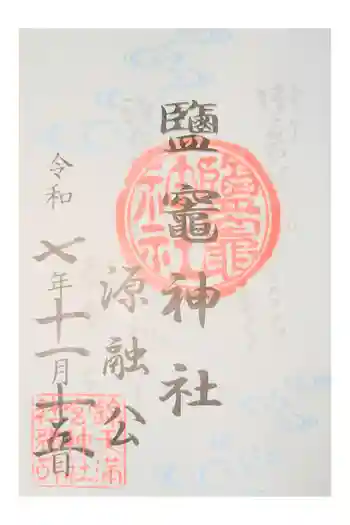 鹽竈神社
源融公
令和七年十一月十五日
鹽竈神社